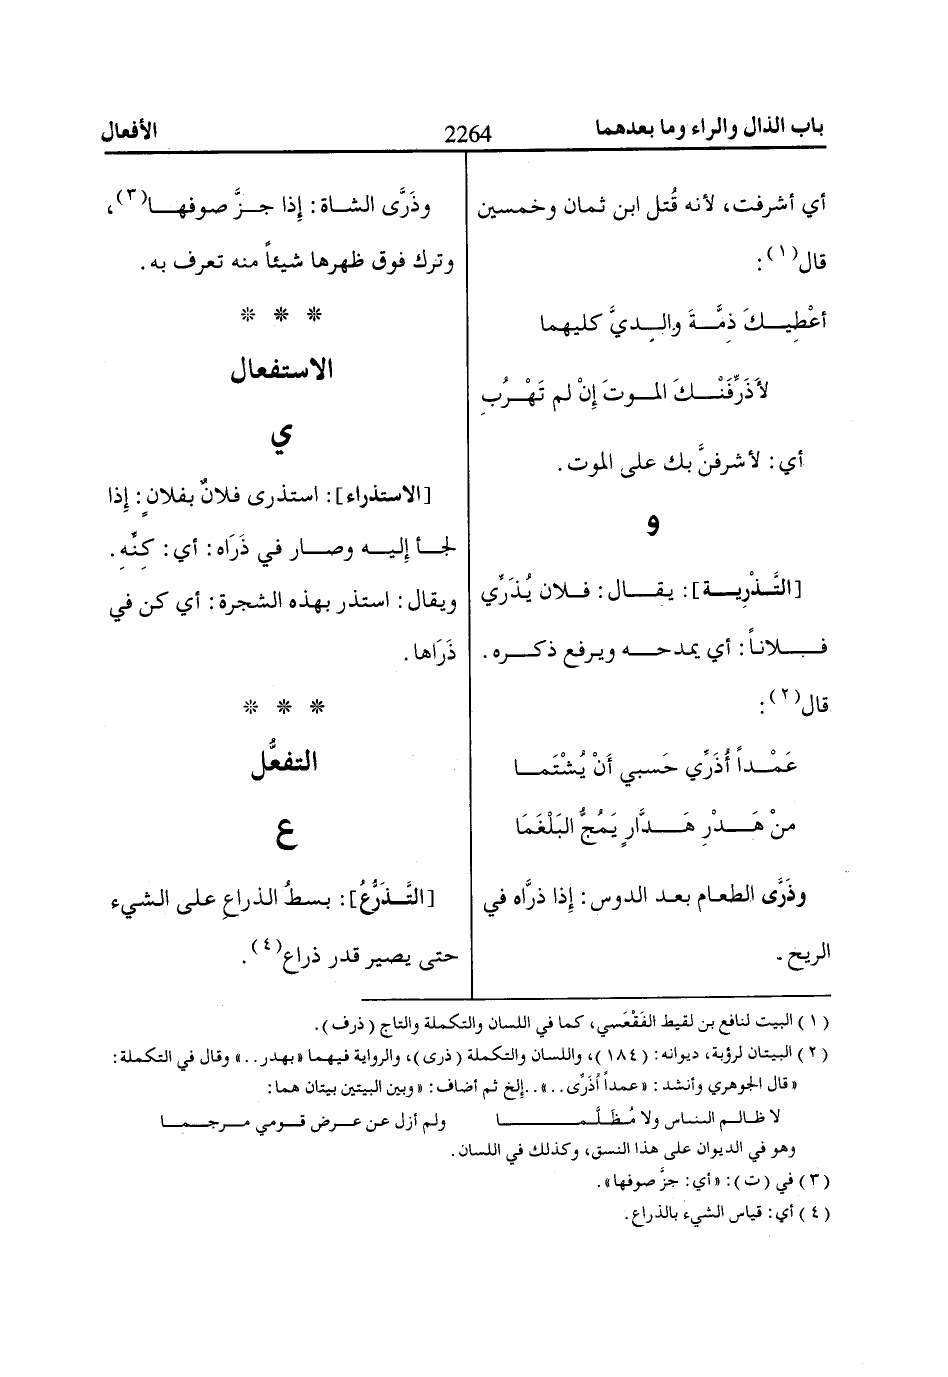 باب الذال والراء وما بعدهما 2264 الأفعال
أي أشرفت، لأنه قُتل ابن ثمان وخمسين
قال(١):
أعْطِيــكَ ذمَّــةَ والــدِيَّ كليهما
لأَذَرِّفَنْــكَ المـوتَ إنْ لم تَهْـرُبِ
أي: لأشرفنَّ بك على الموت.
و
[التَّـذْرِيـة]: يقـال: فـلان يُذَرِّي
فـلاناً: أي يمدحـه ويرفع ذكـره.
قال(٢):
عَمْـداً أُذَرِّي حَسبي أنْ يُشْتَمـا
منْ هَـدْرِ هَـدَّارٍ يَمُجُّ البَلْغَمَا
وذَرَّى الطعـام بعـد الدوس: إذا ذرَّاه في
الريح.
وذَرَّى الشـاة: إذا جـزَّ صوفهـا(٣)،
وترك فوق ظهرها شيئاً منه تعرف به.
* * *
الاستفعال
ي
[الاستذراء]: استذرى فلانٌ بفلانٍ: إذا
لجـأ إليـه وصـار في ذَرَاه: أي: كنِّهِ.
ويقال: استذر بهذه الشجرة: أي كن في
ذَرَاها.
* * *
التفعُّل
ع
[التَّـذَرُّعُ]: بسطُ الذراعِ على الشيء
حتى يصير قدر ذراع(٤).
(١) البيت لنافع بن لقيط الفَقْعَسي، كما في اللسان والتكملة والتاج (ذرف).
(٢) البيتان لرؤبة، ديوانه: (١٨٤)، واللسان والتكملة (ذرى)، والرواية فيهما «بهدر..» وقال في التكملة:
«قال الجوهري وأنشد: «عمداً أذَرِّى..»..إلخ ثم أضاف: «وبين البيتين بيتان هما:
لا ظـالـم النـاس ولا مُـظَلَّمـا ولم أزل عـن عـرض قـومي مـرجمـا
وهو في الديوان على هذا النسق، وكذلك في اللسان.
(٣) في (ت): «أي: جزَّ صوفها».
(٤) أي: قياس الشيء بالذراع.